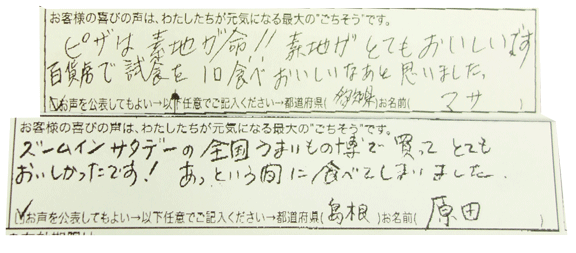 お客様の喜びの声は、わたしたちが元気になる最大の"ごちそう"です。
ピザは素地が命!! 素地がとてもおいしいです
百貨店で試食を1口食べおいしいなあと思いました。
お声を公表してもよい→以下任意でご記入ください→都道府県( お名前( マサ )
お客様の喜びの声は、わたしたちが元気になる最大の"ごちそう"です。
ズームインサタデーの全国うまいもの博で買ってとても
おいしかったです! あっという間に食べてしまいました。
お声を公表してもよい→以下任意でご記入ください→都道府県( 島根 )お名前( 原田 )